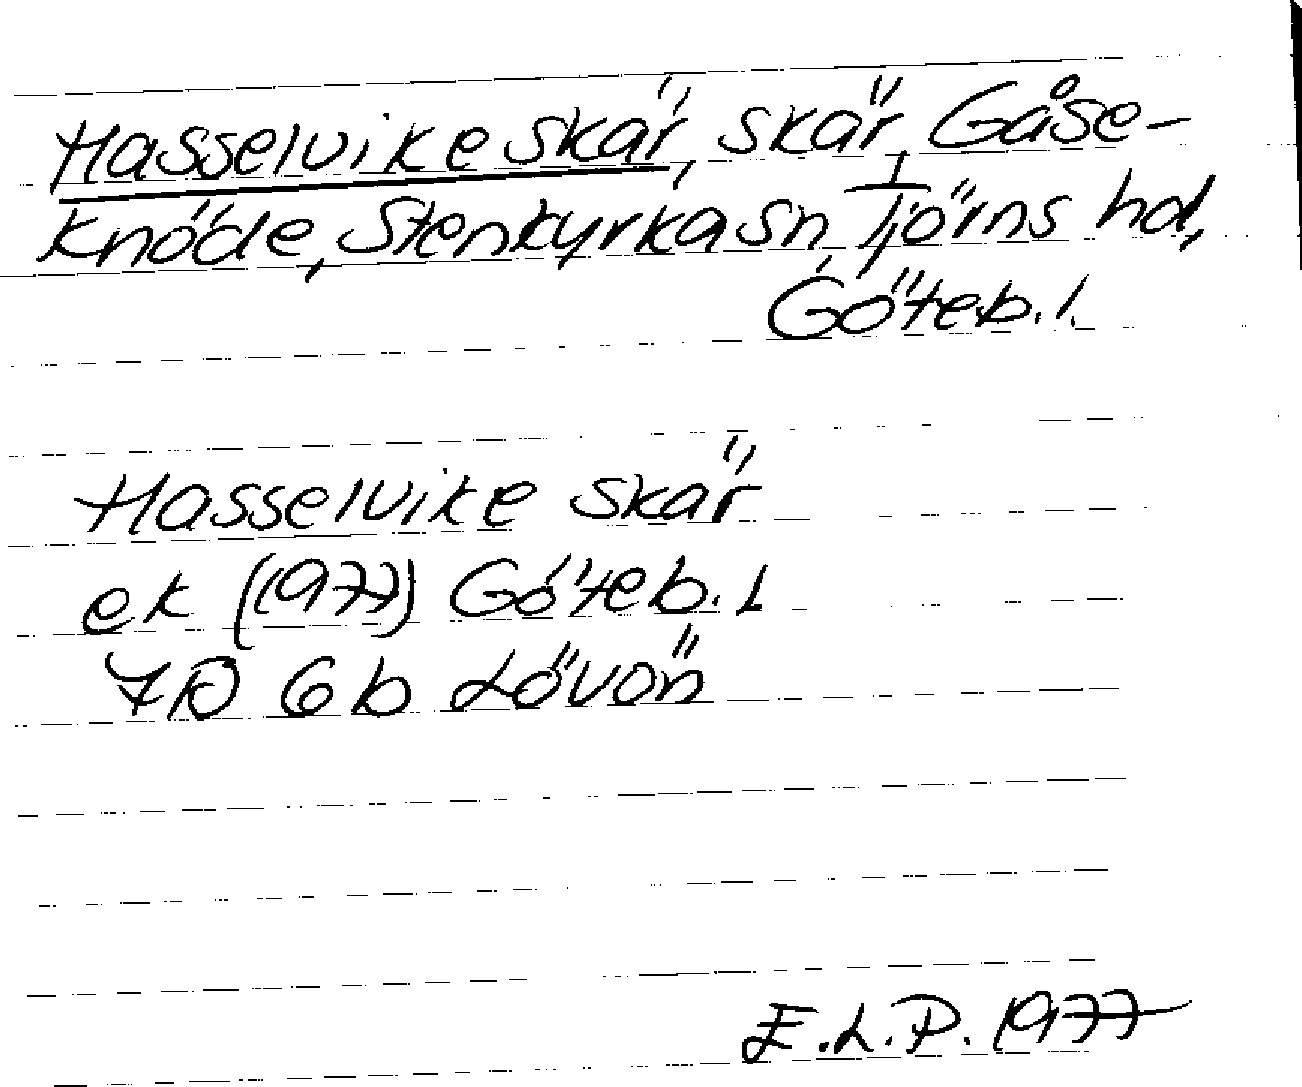 Hasselvike skär, skär, Gåse-
knöde, Stenkyrka sn, Tjörns hd,
Göteb. l.
Hasselvike skär
ek (1977) Göteb. L
7B 6b Lövön
E.L.P. 1977